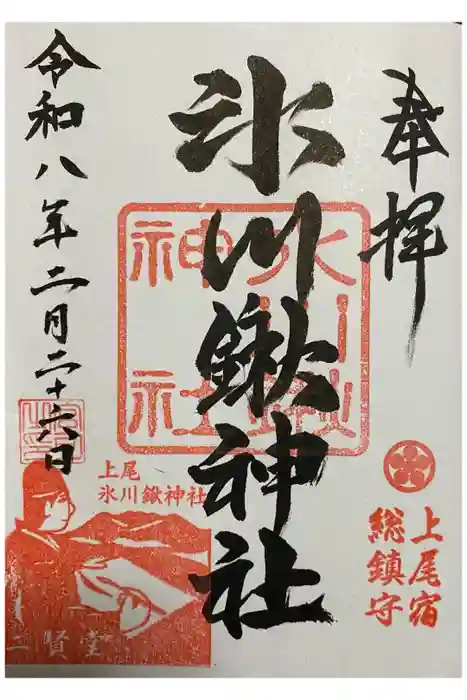 奉拝
上尾宿
総鎮守
氷川鍬神社
氷川鍬神社
上尾
氷川鍬神社
二賢堂
令和八年二月二十六日